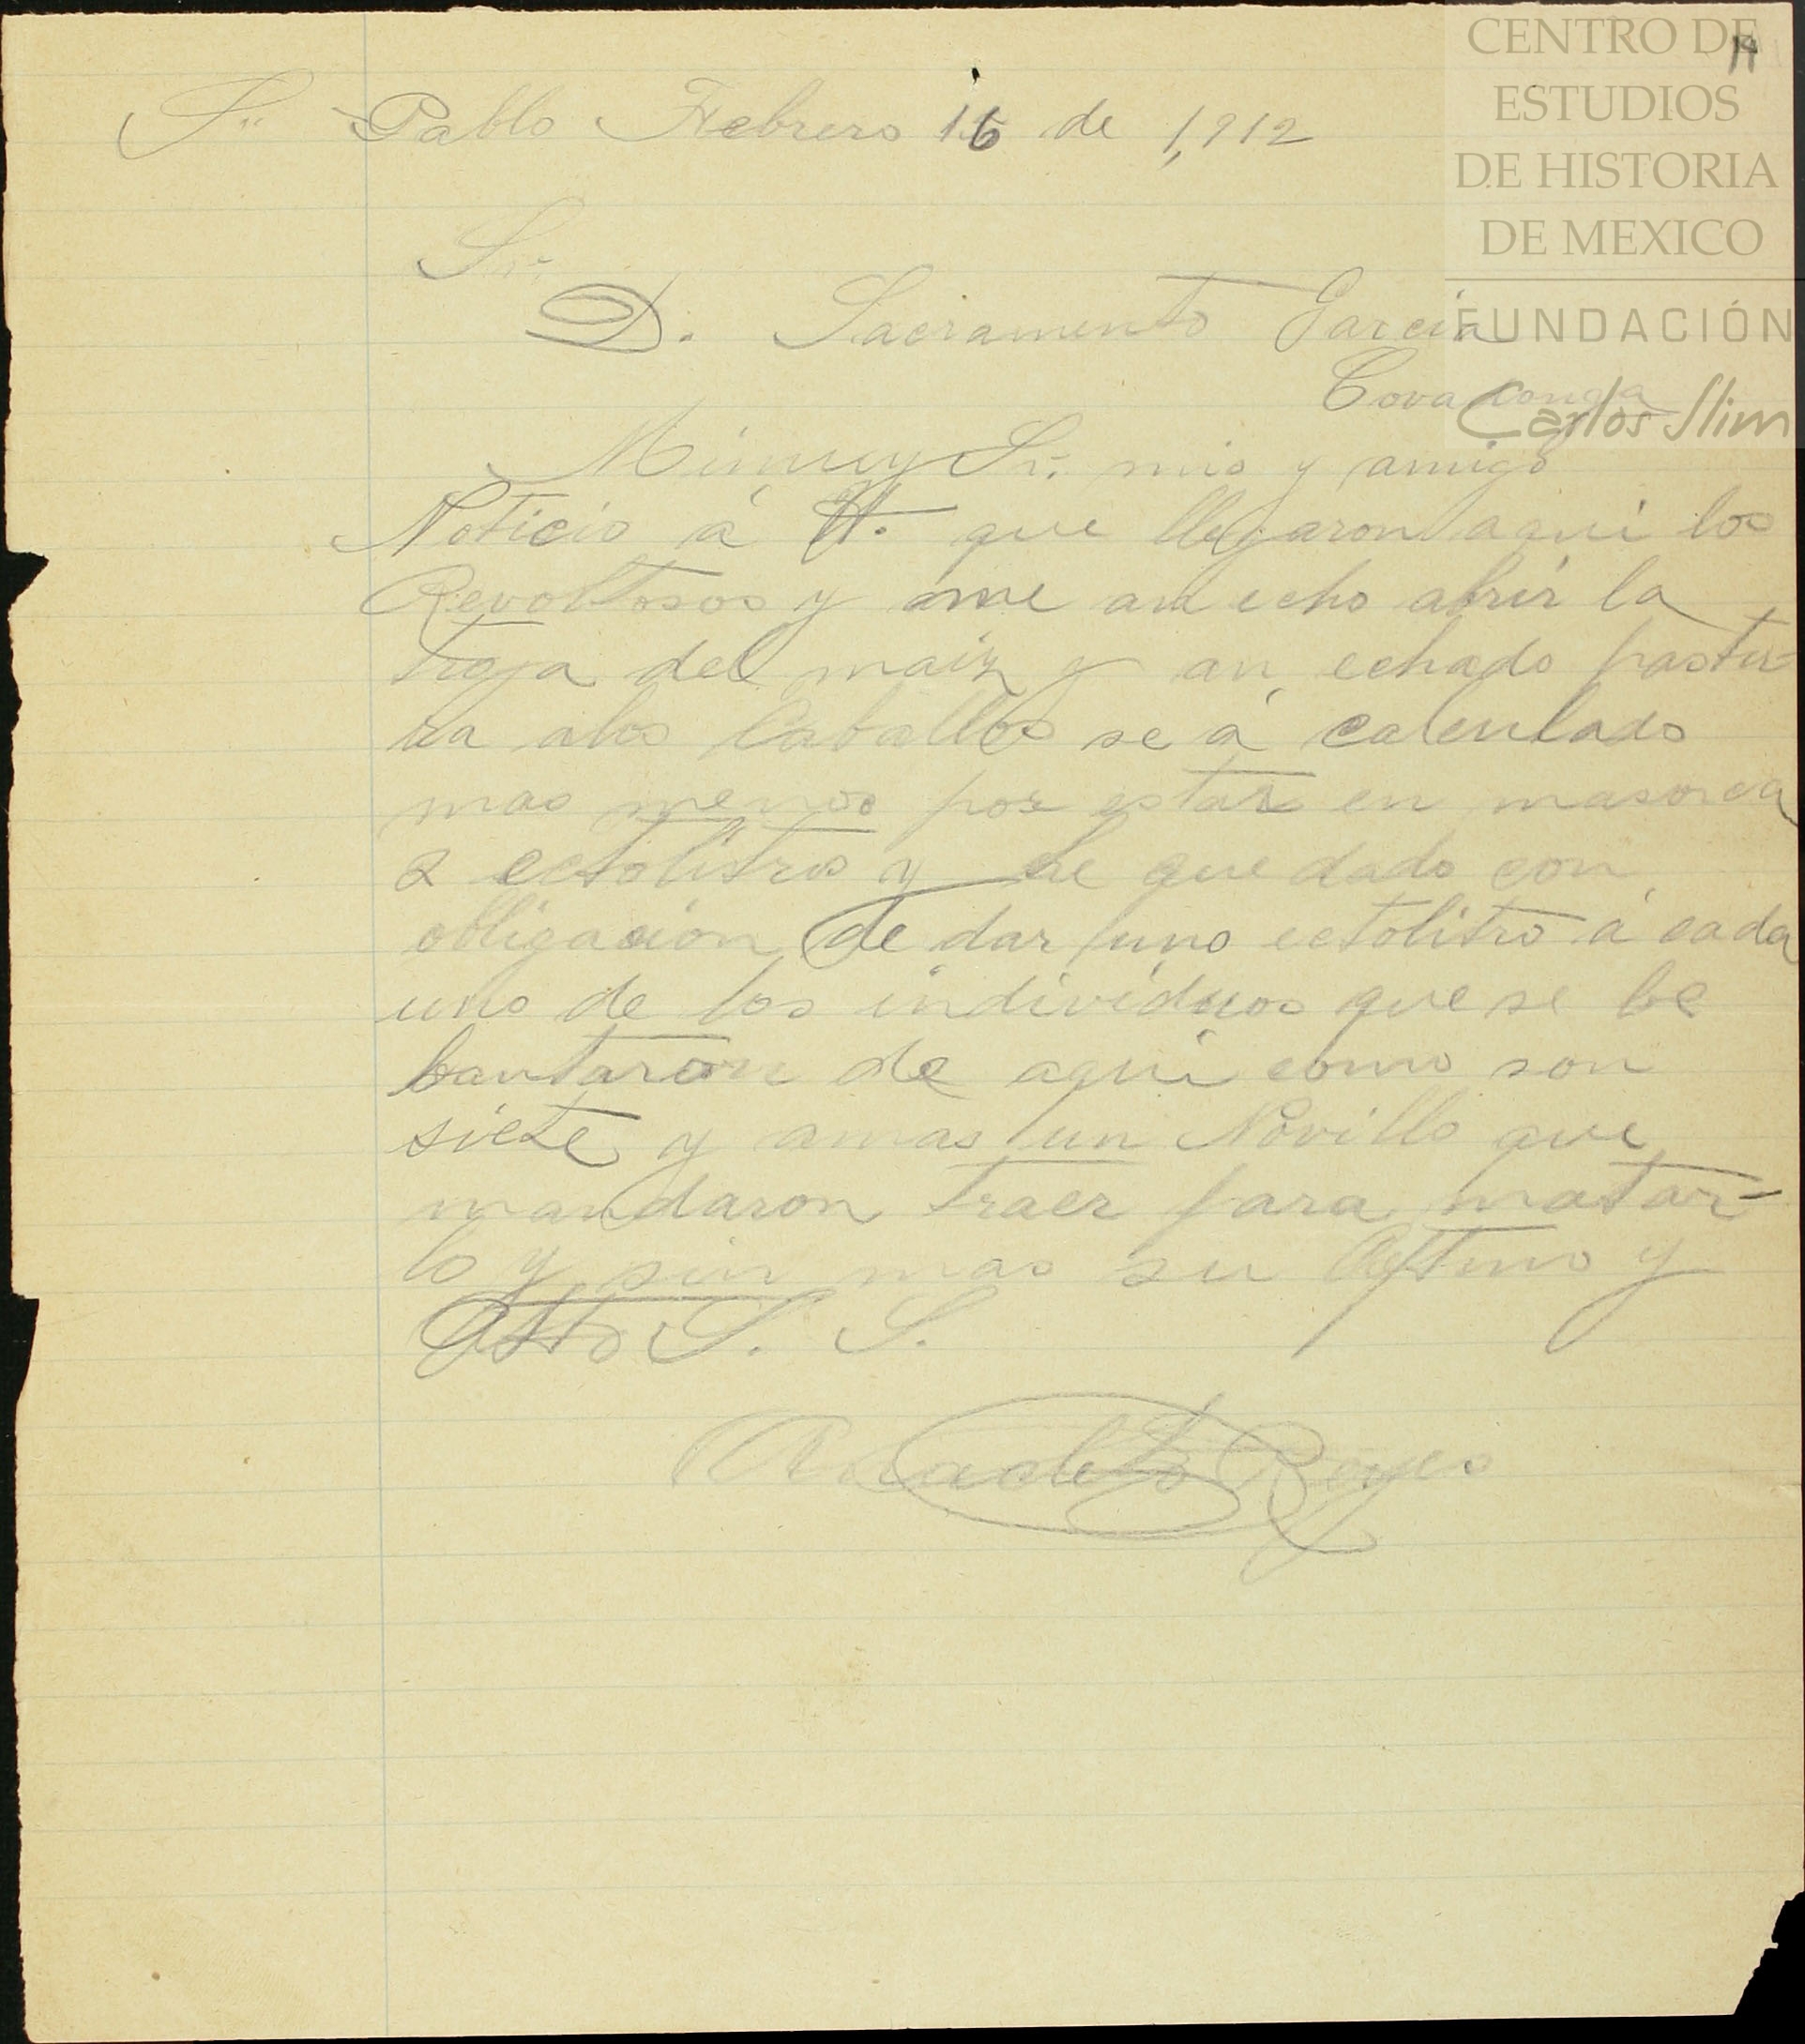 CENTRO DE
ESTUDIOS
DE HISTORIA
DE MEXICO
FUNDACIÓN
Carlos Slim
19
Sn. Pablo Febrero 16 de 1,912
Sr.
D. Sacramento García
Covadonga
Mi muy Sr. mio y amigo
Noticio á U. que llegaron aqui los
Revoltosos y me an echo abrir la
troja del maiz y an echado pastu-
ra alos Caballos se á calculado
mas menos por estar en masorca
2 ectolitros y he quedado con
obligación de dar uno ectolitro á cada
uno de los individuos que se be
bantaron de aqui como son
siete y amas un Novillo que
mandaron traer para matar-
lo y sin mas su Aftmo y
Atto S. S.
Anacleto Reyes